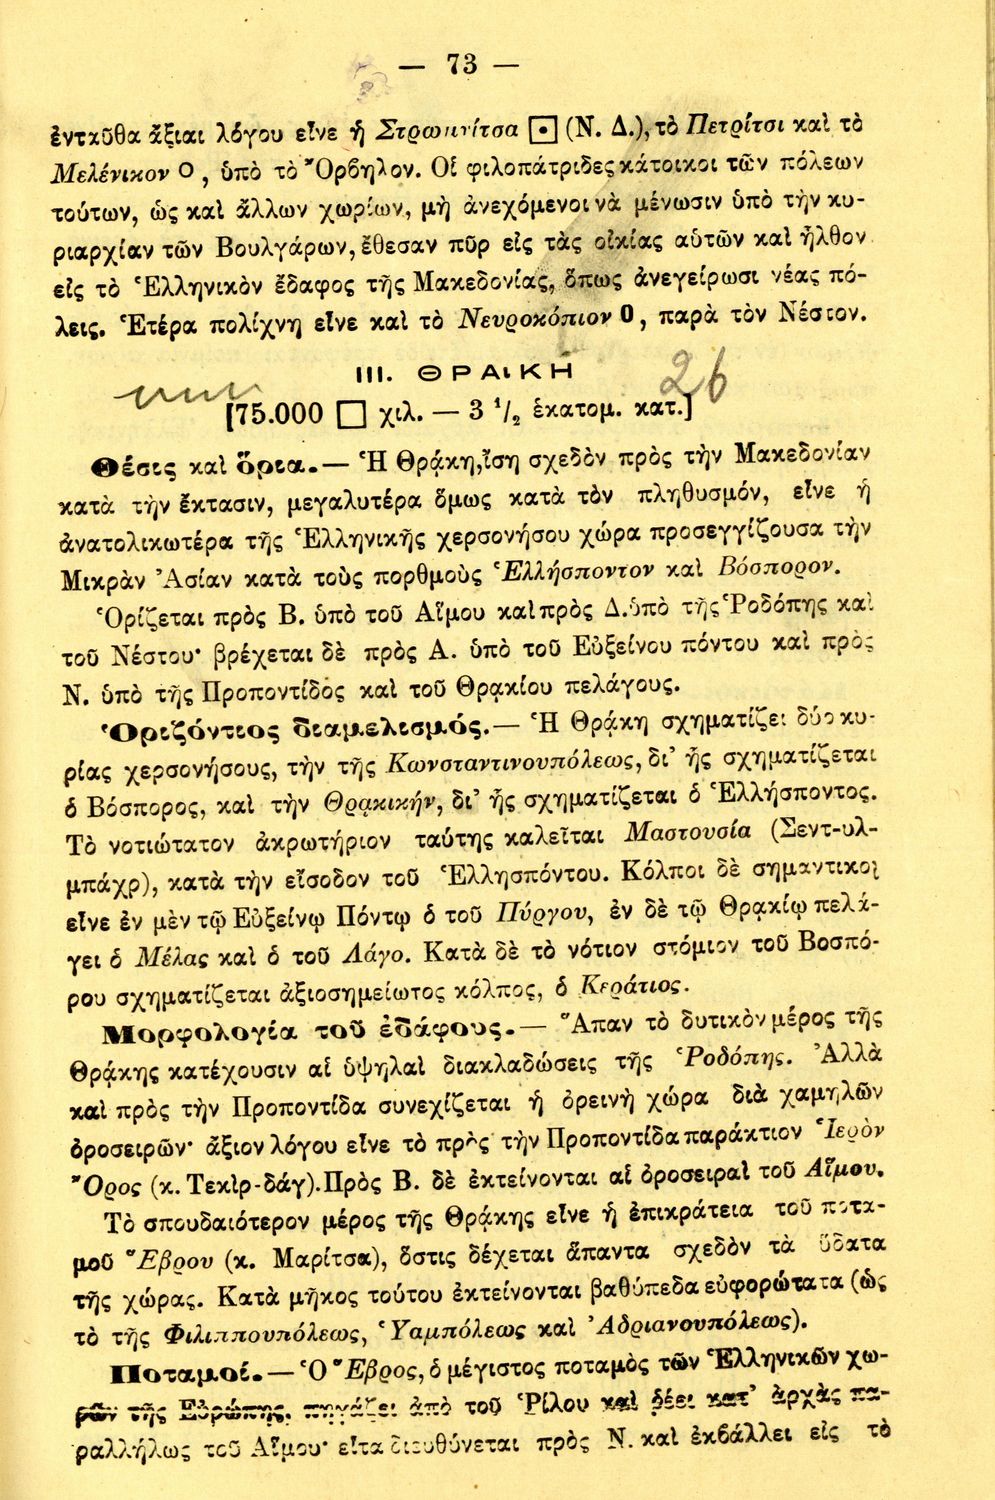 — 73 —
ἐνταῦθα ἄξιαι λόγου εἶνε ἡ Στρωμνίτσα ⊡ (Ν. Δ.), τὸ Πετρίτσι καὶ τὸ
Μελένικον Ο, ὑπὸ τὸ Ὄρβηλον. Οἱ φιλοπάτριδες κάτοικοι τῶν πόλεων
τούτων, ὡς καὶ ἄλλων χωρίων, μὴ ἀνεχόμενοι νὰ μένωσιν ὑπὸ τὴν κυ-
ριαρχίαν τῶν Βουλγάρων, ἔθεσαν πῦρ εἰς τὰς οἰκίας αὑτῶν καὶ ἦλθον
εἰς τὸ Ἑλληνικὸν ἔδαφος τῆς Μακεδονίας, ὅπως ἀνεγείρωσι νέας πό-
λεις. Ἑτέρα πολίχνη εἶνε καὶ τὸ Νευροκόπιον Ο, παρὰ τὸν Νέστον.
III. ΘΡᾼΚΗ
26
[75.000 □ χιλ. — 3 ½ ἑκατομ. κατ.]
Θέσις καὶ ὅρια. — Ἡ Θρᾴκη, ἴση σχεδὸν πρὸς τὴν Μακεδονίαν
κατὰ τὴν ἔκτασιν, μεγαλυτέρα ὅμως κατὰ τὸν πληθυσμόν, εἶνε ἡ
ἀνατολικωτέρα τῆς Ἑλληνικῆς χερσονήσου χώρα προσεγγίζουσα τὴν
Μικρὰν Ἀσίαν κατὰ τοὺς πορθμοὺς Ἑλλήσποντον καὶ Βόσπορον.
Ὁρίζεται πρὸς Β. ὑπὸ τοῦ Αἵμου καὶ πρὸς Δ. ὑπὸ τῆς Ῥοδόπης καὶ
τοῦ Νέστου· βρέχεται δὲ πρὸς Α. ὑπὸ τοῦ Εὐξείνου πόντου καὶ πρὸς
Ν. ὑπὸ τῆς Προποντίδος καὶ τοῦ Θρᾳκίου πελάγους.
Ὁριζόντιος διαμελισμός. — Ἡ Θρᾴκη σχηματίζει δύο κυ-
ρίας χερσονήσους, τὴν τῆς Κωνσταντινουπόλεως, δι' ἧς σχηματίζεται
ὁ Βόσπορος, καὶ τὴν Θρᾳκικήν, δι' ἧς σχηματίζεται ὁ Ἑλλήσποντος.
Τὸ νοτιώτατον ἀκρωτήριον ταύτης καλεῖται Μαστουσία (Σεντ-υλ-
μπάχρ), κατὰ τὴν εἴσοδον τοῦ Ἑλλησπόντου. Κόλποι δὲ σημαντικοὶ
εἶνε ἐν μὲν τῷ Εὐξείνῳ Πόντῳ ὁ τοῦ Πύργου, ἐν δὲ τῷ Θρᾳκίῳ πελά-
γει ὁ Μέλας καὶ ὁ τοῦ Λάγο. Κατὰ δὲ τὸ νότιον στόμιον τοῦ Βοσπό-
ρου σχηματίζεται ἀξιοσημείωτος κόλπος, ὁ Κεράτιος.
Μορφολογία τοῦ ἐδάφους. — Ἅπαν τὸ δυτικὸν μέρος τῆς
Θρᾴκης κατέχουσιν αἱ ὑψηλαὶ διακλαδώσεις τῆς Ῥοδόπης. Ἀλλὰ
καὶ πρὸς τὴν Προποντίδα συνεχίζεται ἡ ὀρεινὴ χώρα διὰ χαμηλῶν
ὀροσειρῶν· ἄξιον λόγου εἶνε τὸ πρὸς τὴν Προποντίδα παράκτιον Ἱερὸν
Ὄρος (κ. Τεκὶρ-δάγ). Πρὸς Β. δὲ ἐκτείνονται αἱ ὀροσειραὶ τοῦ Αἵμου.
Τὸ σπουδαιότερον μέρος τῆς Θρᾴκης εἶνε ἡ ἐπικράτεια τοῦ ποτα-
μοῦ Ἕβρου (κ. Μαρίτσα), ὅστις δέχεται ἅπαντα σχεδὸν τὰ ὕδατα
τῆς χώρας. Κατὰ μῆκος τούτου ἐκτείνονται βαθύπεδα εὐφορώτατα (ὡς
τὸ τῆς Φιλιππουπόλεως, Ὑαμπόλεως καὶ Ἀδριανουπόλεως).
Ποταμοί. — Ὁ Ἕβρος, ὁ μέγιστος ποταμὸς τῶν Ἑλληνικῶν χω-
ρῶν τῆς Εὐρώπης, πηγάζει ἀπὸ τοῦ Ῥίλου καὶ ῥέει κατ' ἀρχὰς πα-
ραλλήλως τοῦ Αἵμου· εἶτα διευθύνεται πρὸς Ν. καὶ ἐκβάλλει εἰς τὸ